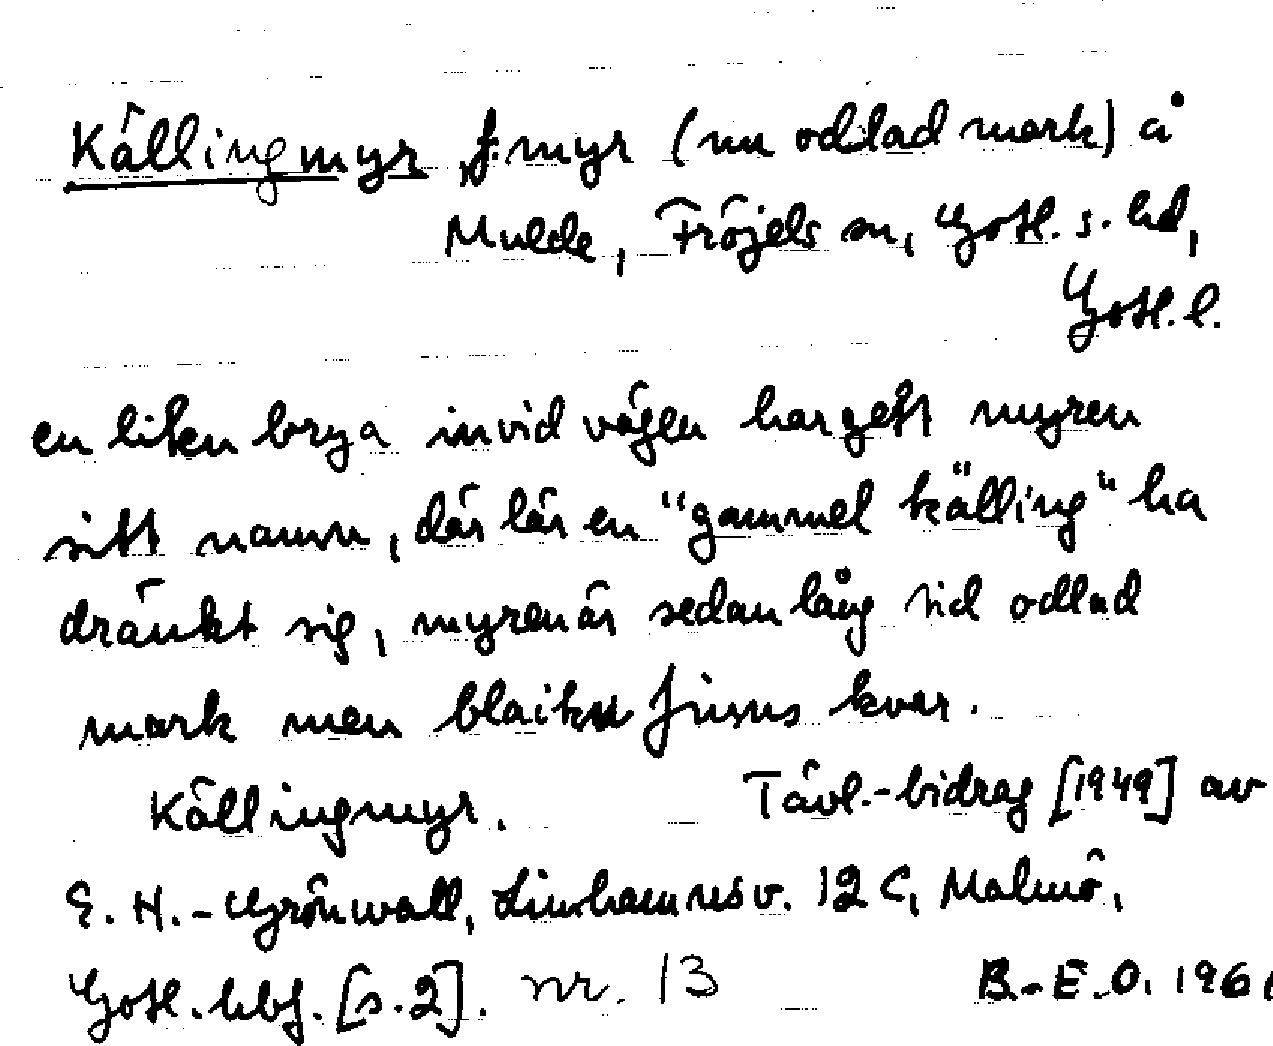 Källingmyr, f. myr (nu odlad mark) å
Mulde, Fröjels sn, Gotl. s. hd,
Gotl. l.
en liten brya invid vägen har gett myren
sitt namn, där lär en "gammel källing" ha
dränkt sig, myren är sedan lång tid odlad
mark men blaiku finns kvar.
Källingmyr. Tävl.-bidrag [1949] av
E. H.-Grönwall, Limhamnsv. 12 C, Malmö,
Gotl. hbf. [s. 2]. nr. 13 B.-E.O. 1961